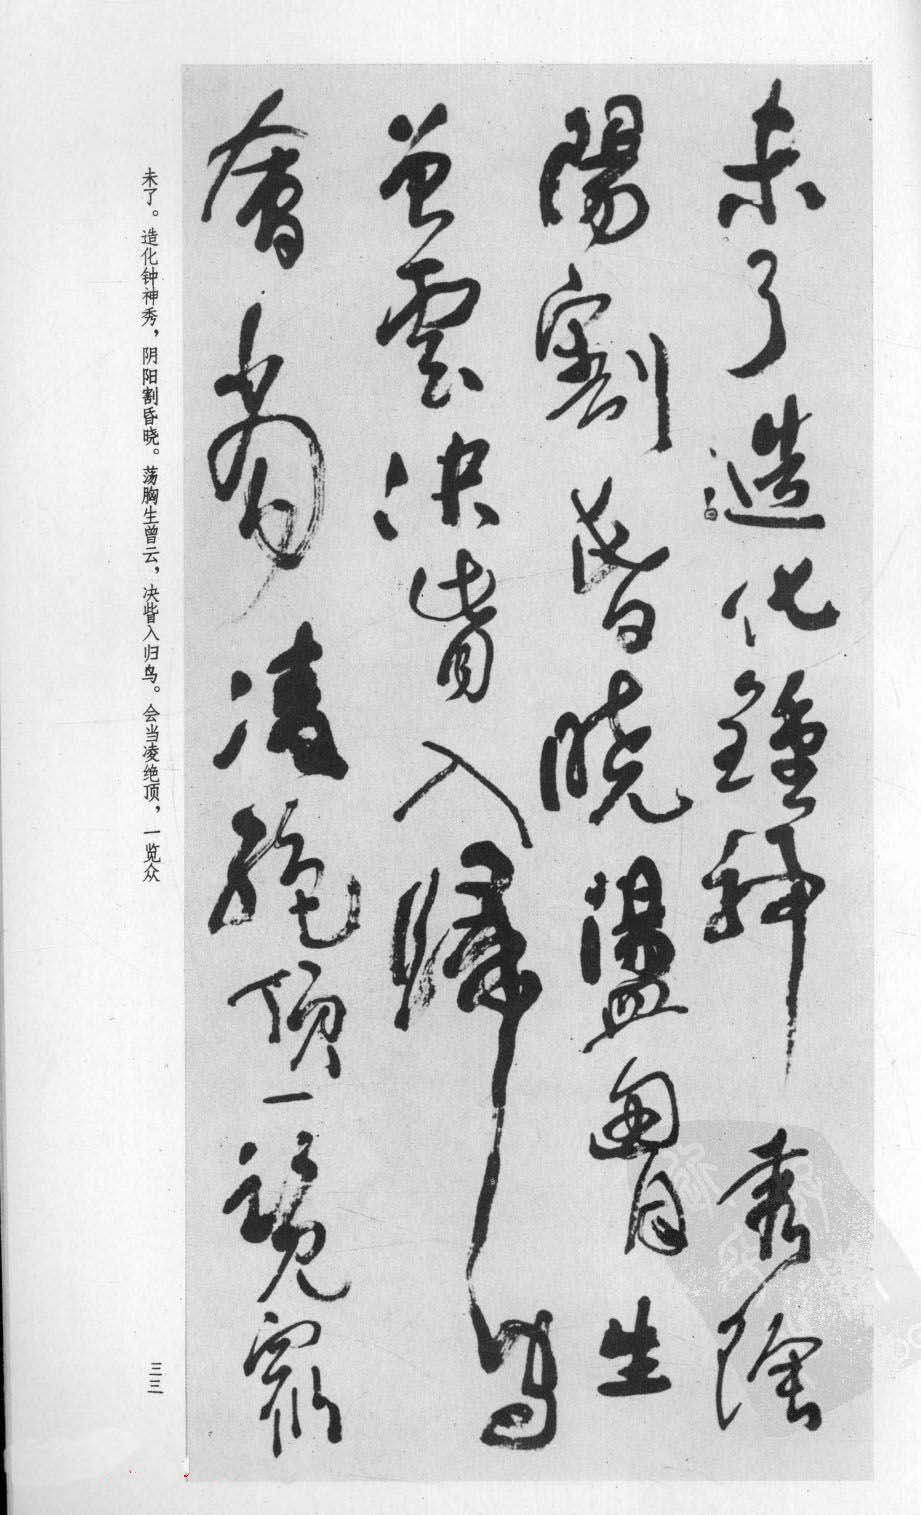 未了造化鍾神秀陰
陽割昏曉盪胷生
曾雲決眥入歸鳥
會當凌絕頂一覽眾
未了。造化钟神秀，阴阳割昏晓。荡胸生曾云，决眥入归鸟。会当凌绝顶，一览众
三三